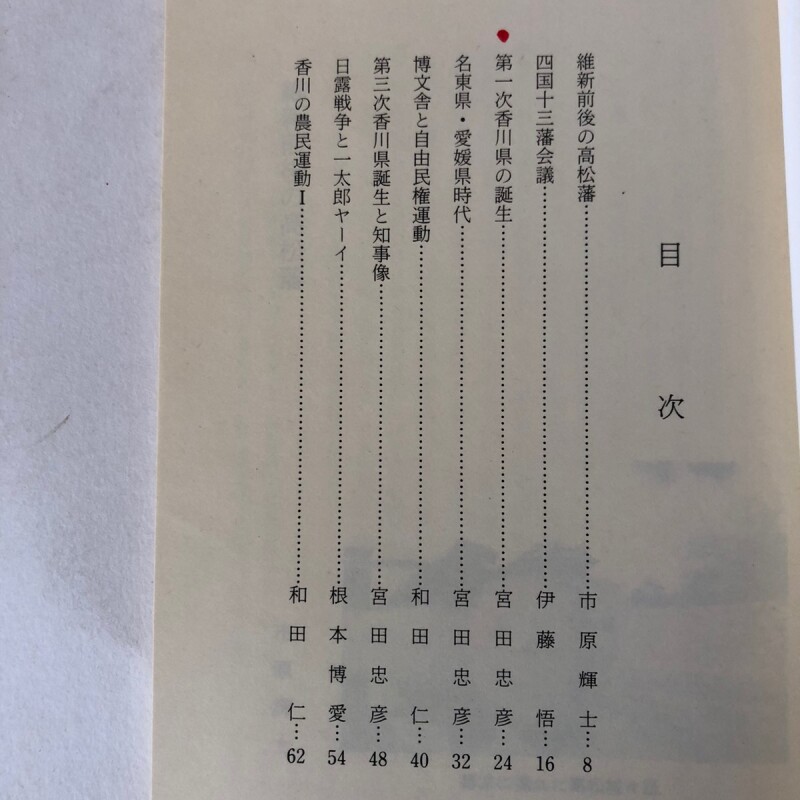 目次
維新前後の高松藩……市原輝士…8
四国十三藩会議……伊藤悟…16
第一次香川県の誕生……宮田忠彦…24
名東県・愛媛県時代……宮田忠彦…32
博文舎と自由民権運動……和田仁…40
第三次香川県誕生と知事像……宮田忠彦…48
日露戦争と一太郎ヤーイ……根本博愛…54
香川の農民運動Ⅰ……和田仁…62